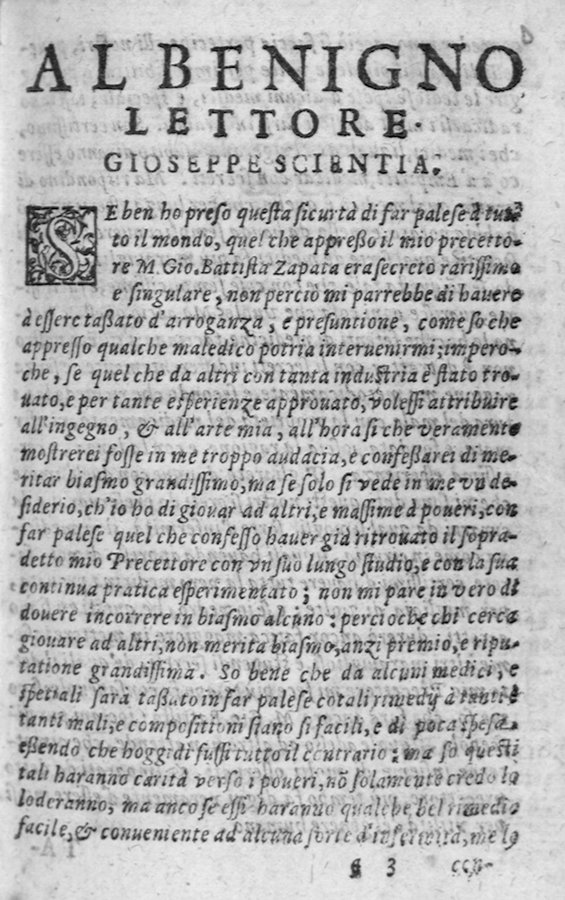 AL BENIGNO
LETTORE.
GIOSEPPE SCIENTIA.
SE ben ho preso questa sicurtà di far palese à tut-
to il mondo, quel che appresso il mio precetto-
re M. Gio. Battista Zapata era secreto rarissimo
e singulare, non perciò mi parrebbe di hauere
à essere tassato d'arroganza, e presuntione, come so che
appresso qualche maledico potria interuenirmi; impero-
che, se quel che da altri con tanta industria è stato tro-
uato, e per tante esperienze approuato, volessi attribuire
all'ingegno, & all'arte mia, all'hora si che veramente
mostrerei fosse in me troppo audacia, e confessarei di me-
ritar biasmo grandissimo, ma se solo si vede in me vn de-
siderio, ch'io ho di giouar ad altri, e massime à poueri, con
far palese quel che confesso hauer già ritrouato il sopra-
detto mio Precettore con vn suo lungo studio, e con la sua
continua pratica esperimentato; non mi pare in vero di
douere incorrere in biasmo alcuno: percioche chi cerca
giouare ad altri, non merita biasmo, anzi premio, e ripu-
tatione grandissima. So bene che da alcuni medici, e
spetiali sarà tassato in far palese cotali rimedij à tanti e
tanti mali, e compositioni siano si facili, e di poca spesa.
essendo che hoggidi fussi tutto il contrario: ma so questi
tali haranno carità verso i poueri, nō solamente credo lo
loderanno, ma anco se essi haranno qualche bel rimedio
facile, & conueniente ad alcuna sorte d'infermità, me lo
3 con-